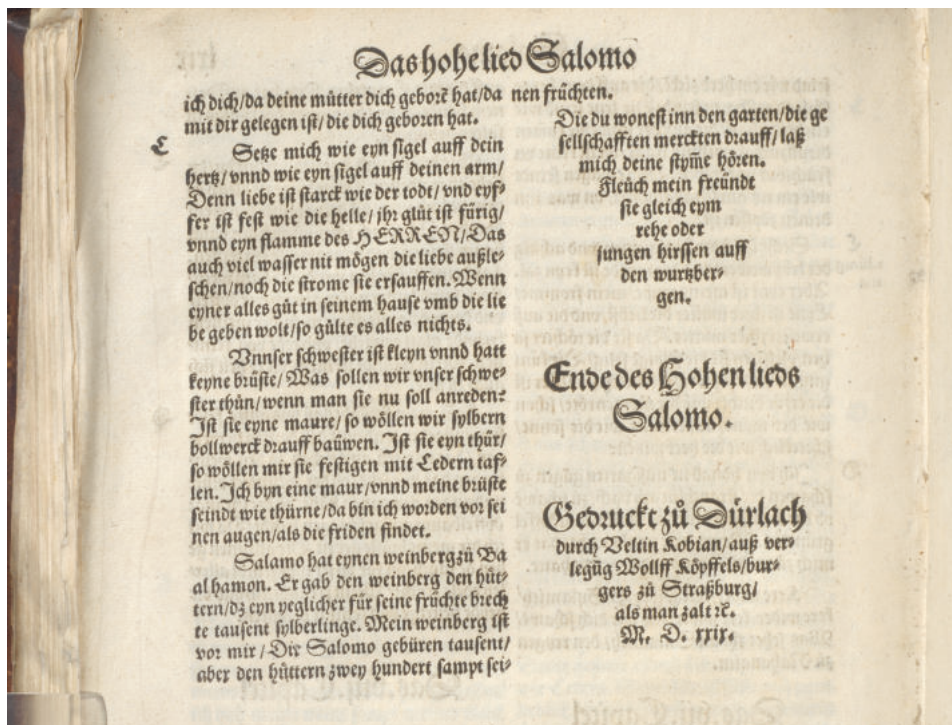 Das hohe lied Salomo
ich dich/da deine můtter dich geborē hat/da
mit dir gelegen ist/ die dich geboren hat.
C
Setze mich wie eyn sigel auff dein
hertz/ vnnd wie eyn sigel auff deinen arm/
Denn liebe ist starck wie der todt/ vnd eyf⸗
fer ist fest wie die helle/ jhr glůt ist fürig/
vnnd eyn flamme des HERREN/ Das
auch viel wasser nit mögen die liebe außle⸗
schen/noch die strome sie ersauffen. Wenn
eyner alles gůt in seinem hause vmb die lie
be geben wolt/so gülte es alles nichts.
Vnnser schwester ist kleyn vnnd hatt
keyne brüste/ Was sollen wir vnser schwe⸗
ster thůn/ wenn man sie nu soll anreden?
Ist sie eyne maure/ so wöllen wir sylbern
bollwerck drauff baüwen. Ist sie eyn thür/
so wöllen mir sie festigen mit Cedern taf⸗
len. Ich byn eine maur/vnnd meine brüste
seindt wie thürne/da bin ich worden vor sei
nen augen/als die friden findet.
Salamo hat eynen weinberg zů Ba
al hamon. Er gab den weinberg den hüt⸗
tern/dz eyn yeglicher für seine früchte brech
te tausent sylberlinge. Mein weinberg ist
vor mir/ Dir Salomo gebüren tausent/
aber den hüttern zwey hundert sampt sei⸗
nen früchten.
Die du wonest inn den garten/die ge
sellschafften merckten drauff/ laß
mich deine stym̄e hören.
Fleüch mein freündt
sie gleich eym
rehe oder
jungen hirssen auff
den wurtzber⸗
gen.
Ende des Hohen lieds
Salomo.
Gedruckt zů Dürlach
durch Veltin Kobian/ auß ver⸗
legūg Wolff Köpffels/bur⸗
gers zů Straßburg/
als man zalt ꝛc.
M. D. xxix.